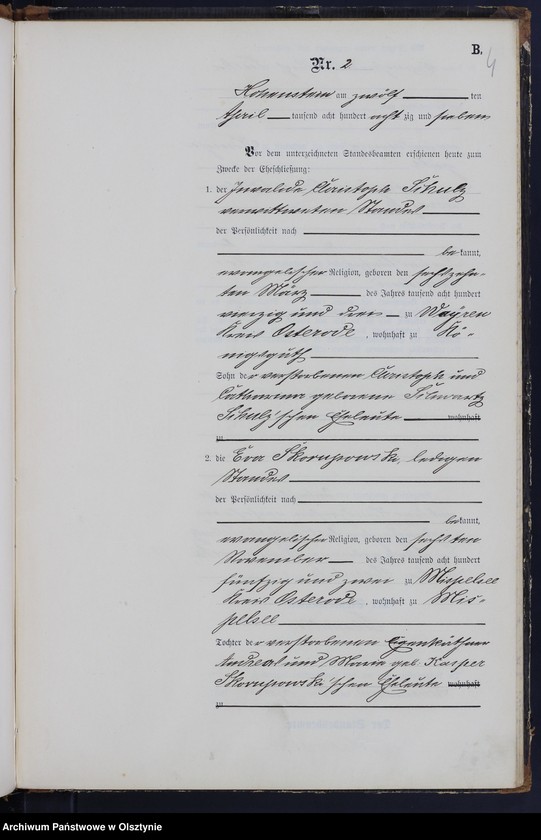 B.
4
Nr. 2
Hohenstein am zwölf ten
April tausend acht hundert acht zig und sieben
Vor dem unterzeichneten Standesbeamten erschienen heute zum
Zwecke der Eheschließung:
1. der Invalide Christoph Schulz
verwittweten Standes
der Persönlichkeit nach
be kannt,
evangelischer Religion, geboren den sechszehn-
ten März des Jahres tausend acht hundert
vierzig und drei zu
Kreis Osterode, wohnhaft zu Kö-
nigsguth
Sohn der verstorbenen Christoph und
Catharina geborene Schwartz
Schulz'schen Eheleute wohnhaft
zu
2. die Eva Skorupowski, ledigen
Standes
der Persönlichkeit nach
be kannt,
evangelischer Religion, geboren den sechsten
November des Jahres tausend acht hundert
fünfzig und zwei zu Mispelsee
Kreis Osterode, wohnhaft zu Mis-
pelsee
Tochter der verstorbenen Eigenkäthner
Andreas und Marie geb. Kasper
Skorupowski'schen Eheleute wohnhaft
zu
Archiwum Państwowe w Olsztynie